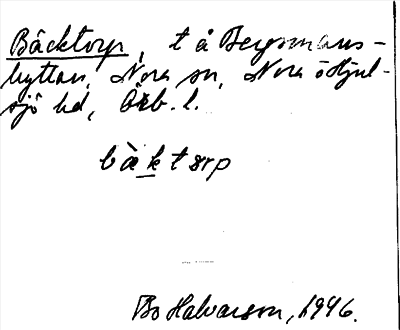 Bäcktorp, t å Bergsmans-
hyttan, Nora sn, Nora o Hjul-
sjö hd, Örb. l.
bὰktɔrp
Bo Halvarson, 1946.